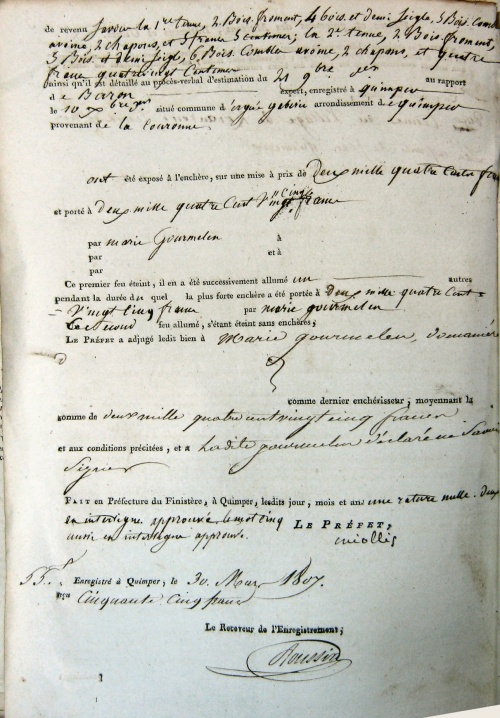 de revenu savoir la 1.re tenue, 2 Bois. froment, 4 bois. et demi Seigle, 5 Bois. Comble
avoine, 2 chapons, et 3 francs 3 centimes; la 2.e tenue, 2 Bois. froment,
3 Bois. et demi Seigle, 6 Bois. Comble avoine, 2 chapons, et quatre
francs quatre vingt Centimes
ainsi qu'il est détaillé au procès-verbal d'estimation du 21 9bre au rapport
de expert, enregistré à quimper
le 10 Xbre situé commune d'ergué gaberic arrondissement de quimper
provenant de la Couronne
ont été exposé à l'enchère, sur une mise à prix de deux mille quatre cents francs
et porté à deux mille quatre Cent Vingt Cinq francs
par marie Gourmelen à
par et à
par
Ce premier feu éteint, il en a été successivement allumé un autres
pendant la durée du quel la plus forte enchère a été portée à deux mille quatre Cent
Vingt Cinq francs par marie gourmelen
Le Second feu allumé, s'étant éteint sans enchères,
LE PRÉFET a adjugé ledit bien à Marie gourmelen,
comme dernier enchérisseur, moyennant la
somme de deux mille quatre cent vingt cinq francs
et aux conditions précitées, et a Ladite gourmelen déclaré ne Savoir
Signer
FAIT en Préfecture du Finistère, à Quimper, lesdits jour, mois et an une rature nulle. deux
en interligne approuvé. le mot cinq LE PRÉFET,
aussi en interligne approuvé.
miollis
55.f Enregistré à Quimper, le 30 Mars 1807.
reçu Cinquante Cinq francs
Le Receveur de l'Enregistrement;
Roussin
1